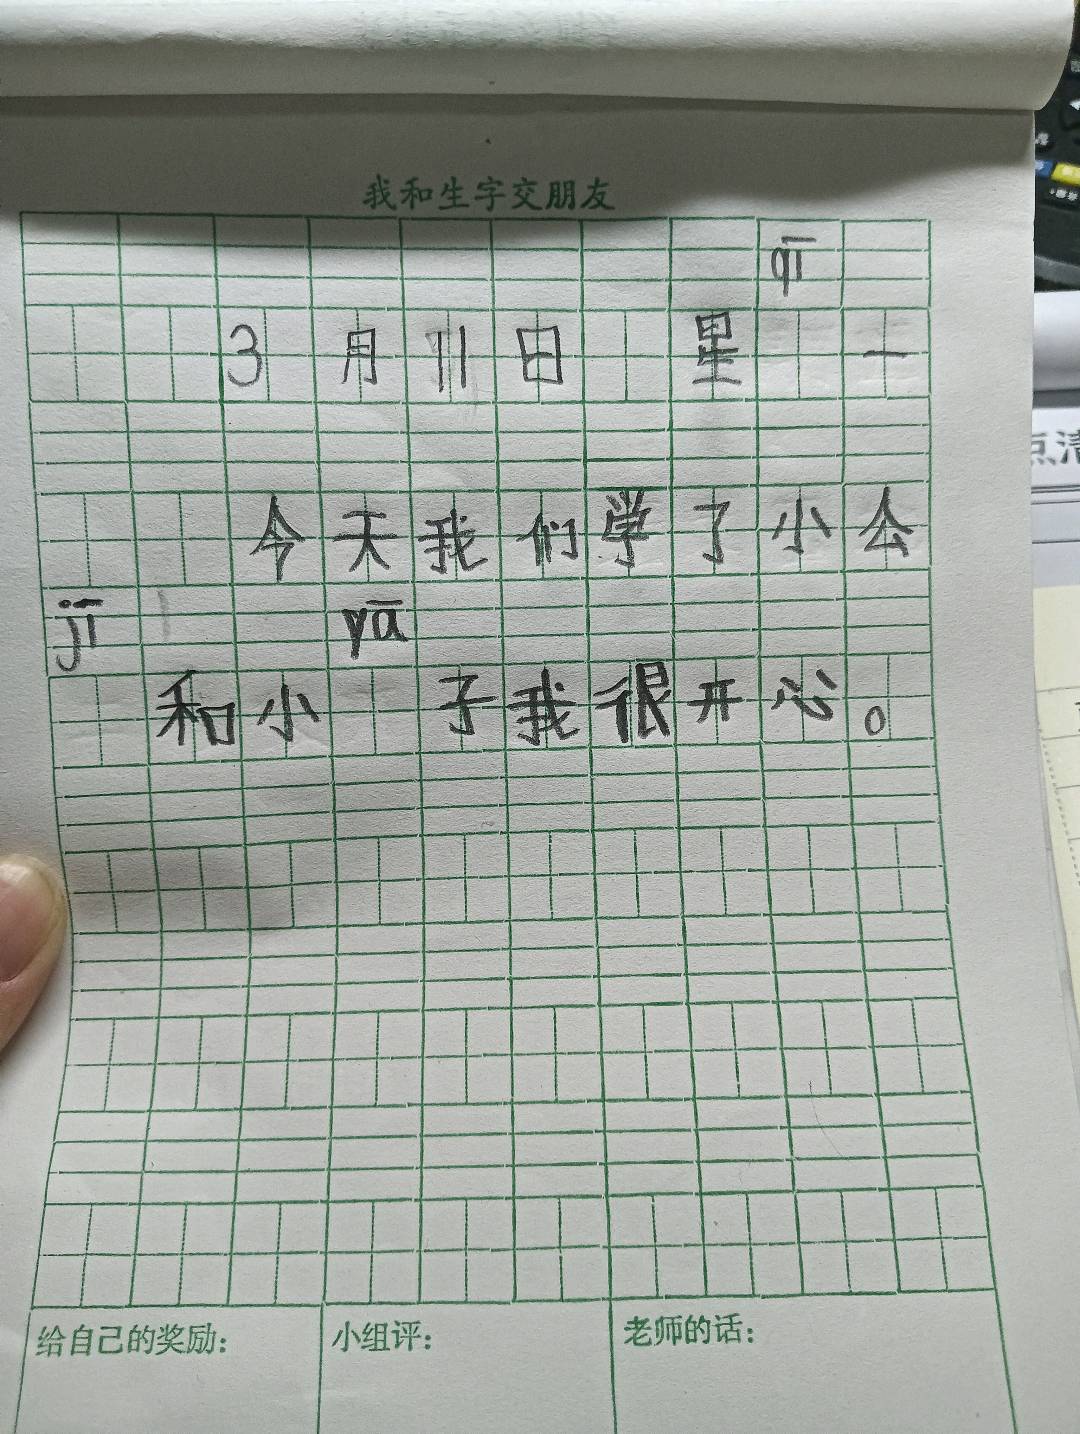 我和生字交朋友
qī
3月11日 星 一
今天我们学了小公
jī yā
和小 子我很开心。
给自己的奖励: 小组评: 老师的话:
点清